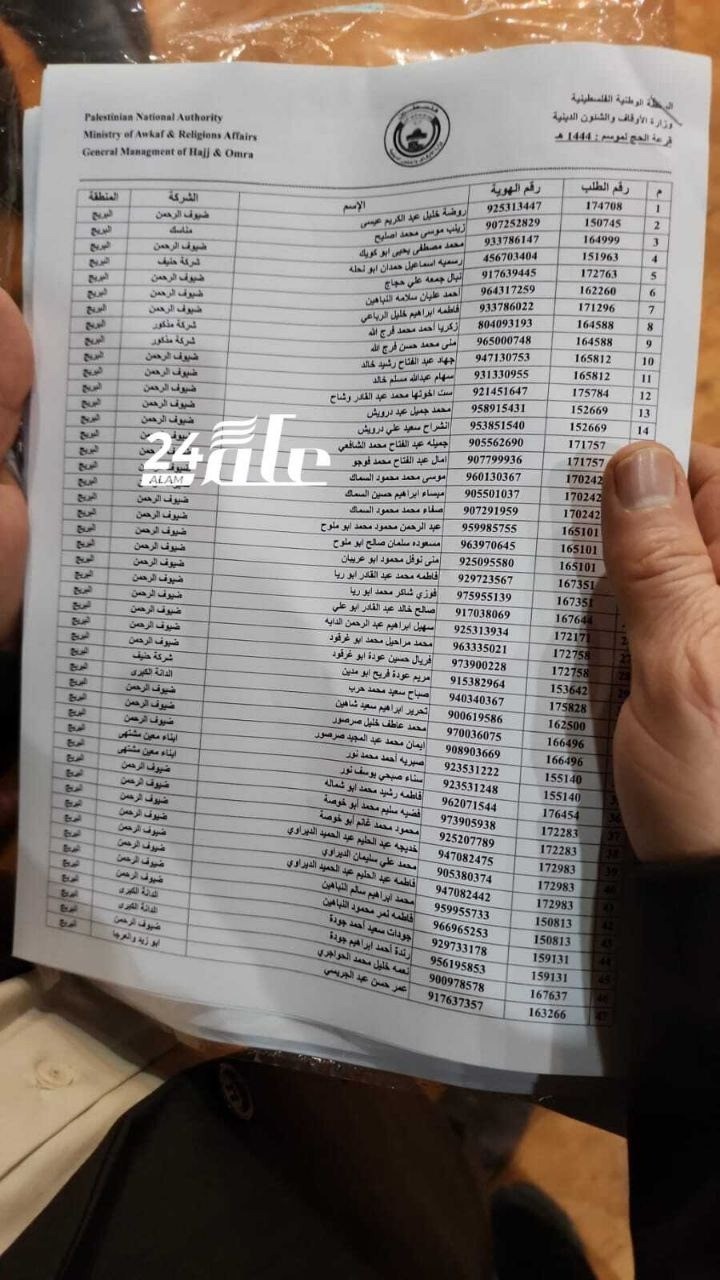 Palestinian National Authority
Ministry of Awkaf & Religions Affairs
General Managment of Hajj & Omra
الوطنية الفلسطينية
وزارة الأوقاف والشئون الدينية
قرعة الحج لموسم : 1444 هـ
م رقم الطلب رقم الهوية الإسم الشركة المنطقة
1 174708 925313447 روضة خليل عبد الكريم عيسى ضيوف الرحمن البريج
2 150745 907252829 زينب موسى محمد اصليح مناسك البريج
3 164999 933786147 محمد مصطفى يحيى ابو كويك ضيوف الرحمن البريج
4 151963 456703404 رسميه اسماعيل حمدان ابو نحله شركة حنيف البريج
5 172763 917639445 نبال جمعه علي حجاج ضيوف الرحمن البريج
6 162260 964317259 احمد عليان سلامه النباهين ضيوف الرحمن البريج
7 171296 933786022 فاطمه ابراهيم خليل الرباعي ضيوف الرحمن البريج
8 164588 804093193 زكريا أحمد محمد فرج الله شركة مذكور البريج
9 164588 965000748 منى محمد حسن فرج الله شركة مذكور البريج
10 165812 947130753 جهاد عبد الفتاح رشيد خالد ضيوف الرحمن البريج
11 165812 931330955 سهام عبدالله مسلم خالد ضيوف الرحمن البريج
12 175784 921451647 ست اخوتها محمد عبد القادر وشاح ضيوف الرحمن البريج
13 152669 958915431 محمد جميل عيد درويش ضيوف الرحمن البريج
14 152669 953851540 انشراح سعيد علي درويش ضيوف الرحمن البريج
171757 905562690 جميله عبد الفتاح محمد الشافعي البريج
171757 907799936 امال عبد الفتاح محمد فوجو البريج
170242 960130367 موسى محمد محمود السماك البريج
170242 905501037 ميساء ابراهيم حسين السماك ضيوف الرحمن البريج
170242 907291959 صفاء محمد محمود السماك ضيوف الرحمن البريج
165101 959985755 عبد الرحمن محمود محمد ابو ملوح ضيوف الرحمن البريج
165101 963970645 مسعوده سلمان صالح ابو ملوح ضيوف الرحمن البريج
165101 925095580 منى نوفل محمود ابو عريبان ضيوف الرحمن البريج
167351 929723567 فاطمه محمد عبد القادر ابو ريا ضيوف الرحمن البريج
167351 975955139 فوزي شاكر محمد ابو ريا ضيوف الرحمن البريج
167644 917038069 صالح خالد عبد القادر ابو علي ضيوف الرحمن البريج
172171 925313934 سهيل ابراهيم عبد الرحمن الدايه ضيوف الرحمن البريج
172758 963335021 محمد مراحيل محمد ابو غرقود ضيوف الرحمن البريج
172758 973900228 فريال حسين عودة ابو غرقود ضيوف الرحمن البريج
153642 915382964 مريم عودة فريح ابو مدين شركة حنيف البريج
175828 940340367 صباح سعيد محمد حرب الدانة الكبرى البريج
162500 900619586 تحرير ابراهيم سعيد شاهين ضيوف الرحمن البريج
166496 970036075 محمد عاطف خليل صرصور ضيوف الرحمن البريج
166496 908903669 ايمان محمد عبد المجيد صرصور ضيوف الرحمن البريج
155140 923531222 صبريه أحمد محمد نور ابناء معين مشتهى البريج
155140 923531248 سناء صبحي يوسف نور ابناء معين مشتهى البريج
176454 962071544 فاطمه رشيد محمد ابو شماله ضيوف الرحمن البريج
37 172283 973905938 فضيه سليم محمد أبو خوصة ضيوف الرحمن البريج
38 172283 925207789 محمود محمد غانم أبو خوصة ضيوف الرحمن البريج
39 172983 947082475 خديجه عبد الحليم عبد الحميد الديراوي ضيوف الرحمن البريج
40 172983 905380374 محمد علي سليمان الديراوي ضيوف الرحمن البريج
41 172983 947082442 فاطمه عبد الحليم عبد الحميد الديراوي ضيوف الرحمن البريج
150813 959955733 محمد ابراهيم سالم النباهين ضيوف الرحمن البريج
43 150813 966965253 فاطمه نمر محمود النباهين ضيوف الرحمن البريج
44 159131 929733178 جودات سعيد أحمد جودة الدانة الكبرى البريج
45 159131 956195853 رندة أحمد ابراهيم جودة الدانة الكبرى البريج
46 167637 900978578 نعمه خليل محمد الحواجري ضيوف الرحمن البريج
47 163266 917637357 عمر حسن عبد الجريسي ابو زيد والعرجا البريج
24
ALAM